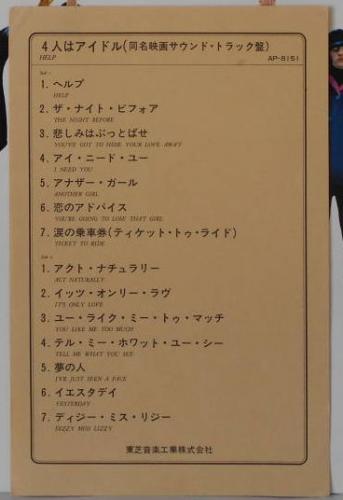 4人はアイドル(同名映画サウンド・トラック盤)
HELP
AP-8151
Side 1
1. ヘルプ
HELP
2. ザ・ナイト・ビフォア
THE NIGHT BEFORE
3. 悲しみはぶっとばせ
YOU'VE GOT TO HIDE YOUR LOVE AWAY
4. アイ・ニード・ユー
I NEED YOU
5. アナザー・ガール
ANOTHER GIRL
6. 恋のアドバイス
YOU'RE GOING TO LOSE THAT GIRL
7. 涙の乗車券(ティケット・トゥ・ライド)
TICKET TO RIDE
Side 2
1. アクト・ナチュラリー
ACT NATURALLY
2. イッツ・オンリー・ラヴ
IT'S ONLY LOVE
3. ユー・ライク・ミー・トゥ・マッチ
YOU LIKE ME TOO MUCH
4. テル・ミー・ホワット・ユー・シー
TELL ME WHAT YOU SEE
5. 夢の人
I'VE JUST SEEN A FACE
6. イエスタデイ
YESTERDAY
7. ディジー・ミス・リジー
DIZZY MISS LIZZY
東芝音楽工業株式会社